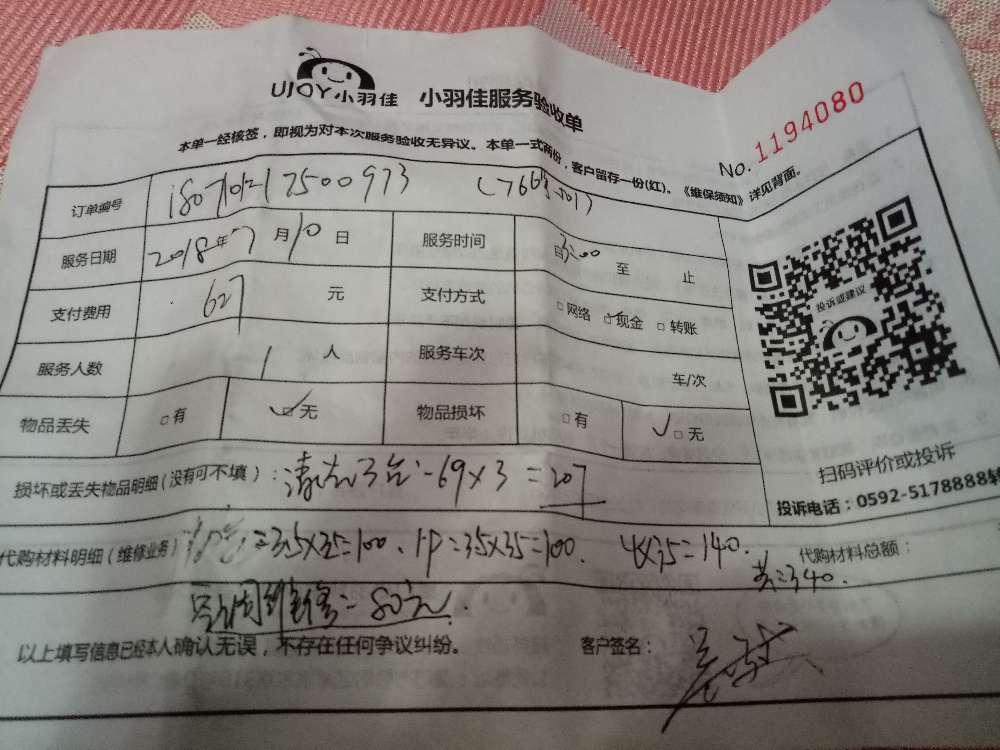 UJOY小羽佳 小羽佳服务验收单
No. 1194080
本单一经核签，即视为对本次服务验收无异议。本单一式两份，客户留存一份(红)。《维保须知》详见背面。
订单编号
服务日期 2018年7月10日 服务时间 自 至 止
支付费用 627 元 支付方式 □网络 ☑现金 □转账
服务人数 1 人 服务车次 车/次
物品丢失 □有 ☑无 物品损坏 □有 ✓□无
投诉或建议
扫码评价或投诉
投诉电话：0592-5178888转
损坏或丢失物品明细(没有可不填)：清洗3台-69×3=207
代购材料明细(维修业务) =35×35=100、1P=35×35=100、4×35=140. 代购材料总额：
共=340.
维修=80元.
以上填写信息已经本人确认无误，不存在任何争议纠纷。 客户签名：